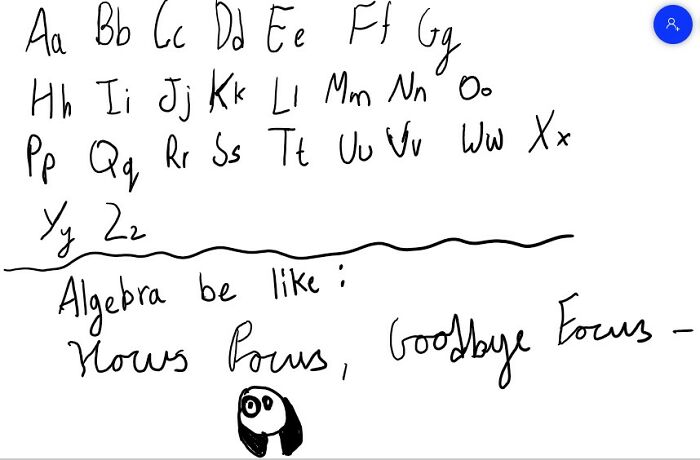 Aa Bb Cc Dd Ee Ff Gg
Hh Ii Jj Kk Ll Mm Nn Oo
Pp Qq Rr Ss Tt Uu Vv Ww Xx
Yy Zz
Algebra be like:
Hocus Pocus, Goodbye Focus -